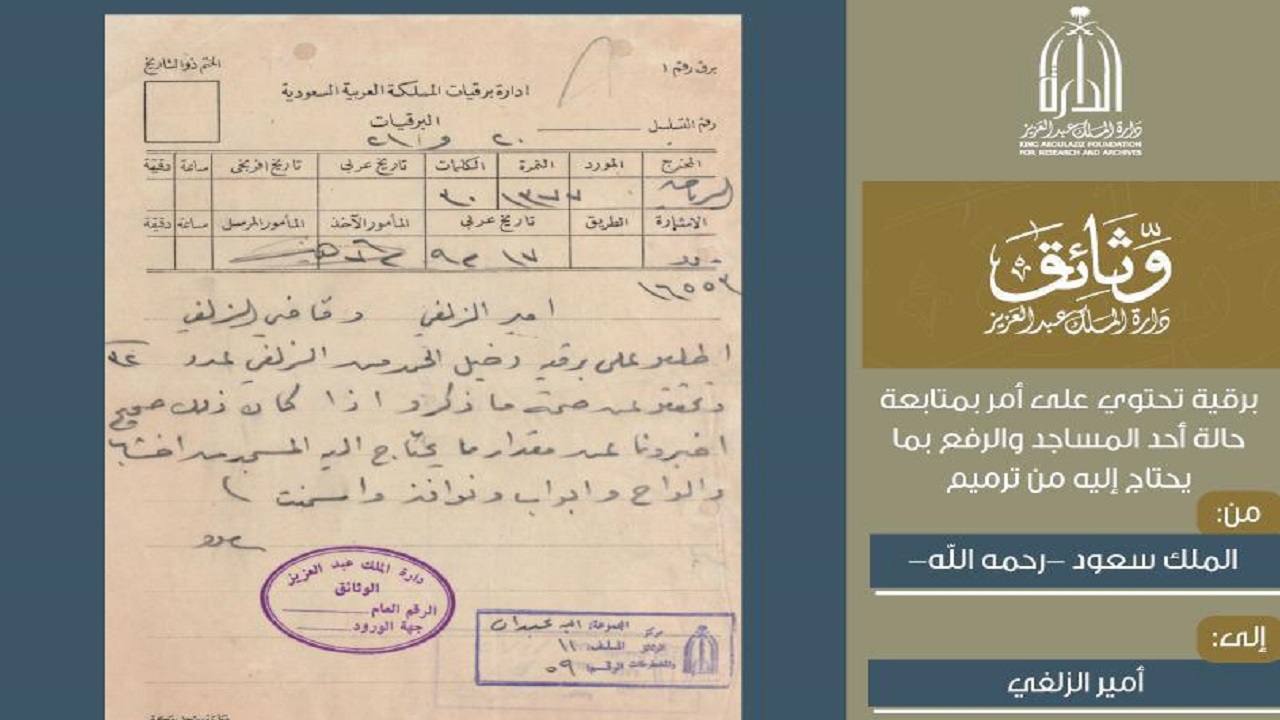 برق رقم ١
الختم ذو التاريخ
ادارة برقيات المملكة العربية السعودية
البرقيات
رقم التسلسل
المخرج المورد النمرة الكلمات تاريخ عربي تاريخ افرنجي ساعة دقيقة
الرياض ١٣٧٧ ٣٠
الاشارة الطريق تاريخ عربي المأمور الآخذ المأمور المرسل ساعة دقيقة
١٧
١٦٥٥٣
امير الزلفي وقاضي الزلفي
اطلعوا على برقية دخيل الحمد من الزلفي عدد
وتحققوا عن صحة ما ذكر و اذا كان ذلك صحيح
اخبرونا عن مقدار ما يحتاج اليه المسجد من اخشاب
والواح وابواب ونوافذ واسمنت
سعود
دارة الملك عبد العزيز
الوثائق
الرقم العام
جهة الورود
مركز الوثائق والمخطوطات
المجموعة:
الملف: ١١
الرقم: ٥٩
الدارة
دارة الملك عبدالعزيز
KING ABDULAZIZ FOUNDATION
FOR RESEARCH AND ARCHIVES
وثائق
دارة الملك عبدالعزيز
برقية تحتوي على أمر بمتابعة
حالة أحد المساجد والرفع بما
يحتاج إليه من ترميم
من:
الملك سعود –رحمه الله–
إلى:
أمير الزلفي